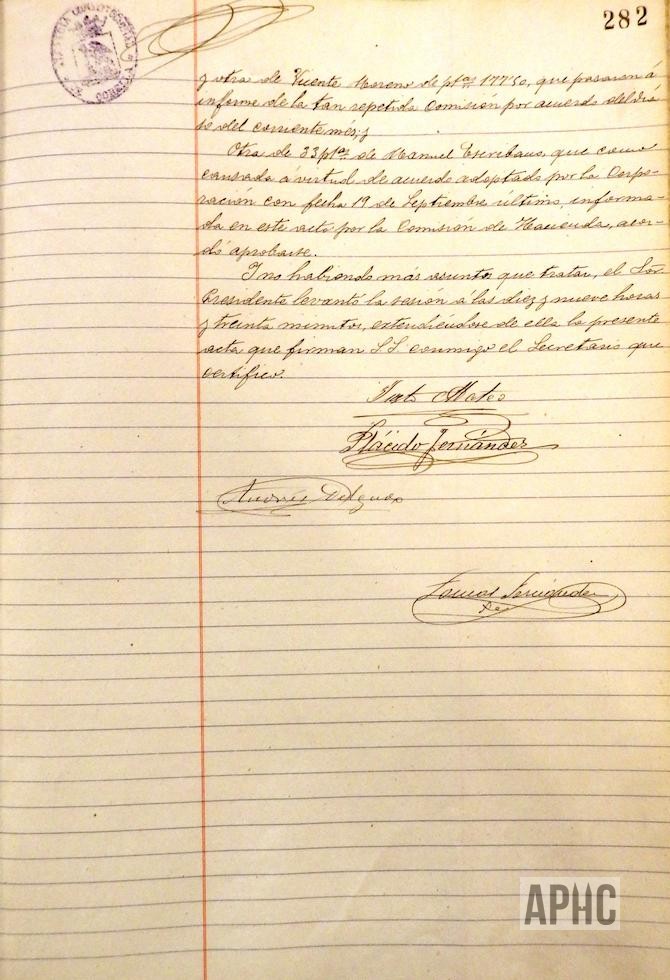 282
ALCALDIA CONSTITUCIONAL
y otra de Vicente Moreno de ptas 177'50, que pasaran á
informe de la tan repetida Comisión por acuerdo del dia
del corriente més; y
Otra de 33 ptas de Manuel Escribano, que como
causada á virtud de acuerdo adoptado por la Corpo-
ración con fecha 19 de Septiembre último, informa-
da en este acto por la Comisión de Hacienda, acor-
dó aprobarse.
Y no habiendo más asuntos que tratar, el Sor.
Presidente levantó la sesión á las diez y nueve horas
y treinta minutos, extendiéndose de ella la presente
acta que firman S.S. conmigo el Secretario que
certifico.
Justo Mateo
Plácido Fernández
Andrés
Tomás Fernández
APHC